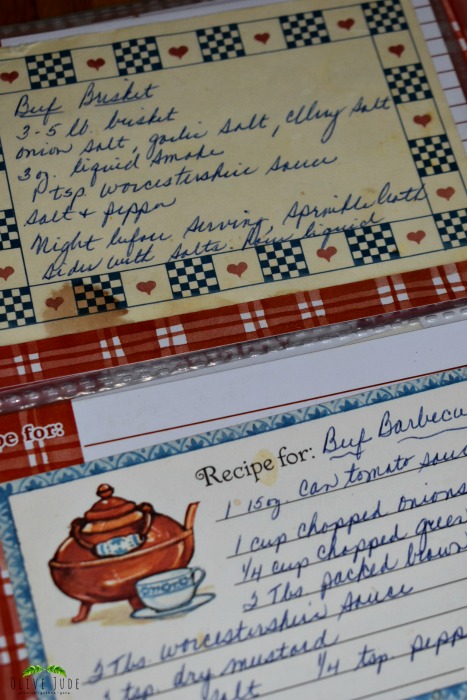 Beef Brisket
3-5 lb. brisket
onion salt, garlic salt, celery salt
3 oz. liquid smoke
tsp. worcestershire sauce
salt & pepper
Night before serving, sprinkle both
sides with salts. Pour liquid
pe for:
Recipe for: Beef Barbecu
1 15oz. can tomato sauc
1 cup chopped onions
1/4 cup chopped green
2 Tbs. packed brown
2 Tbs. worcestershire sauce
tsp. dry mustard
salt 1/4 tsp. pepp
OLIVE JUDE